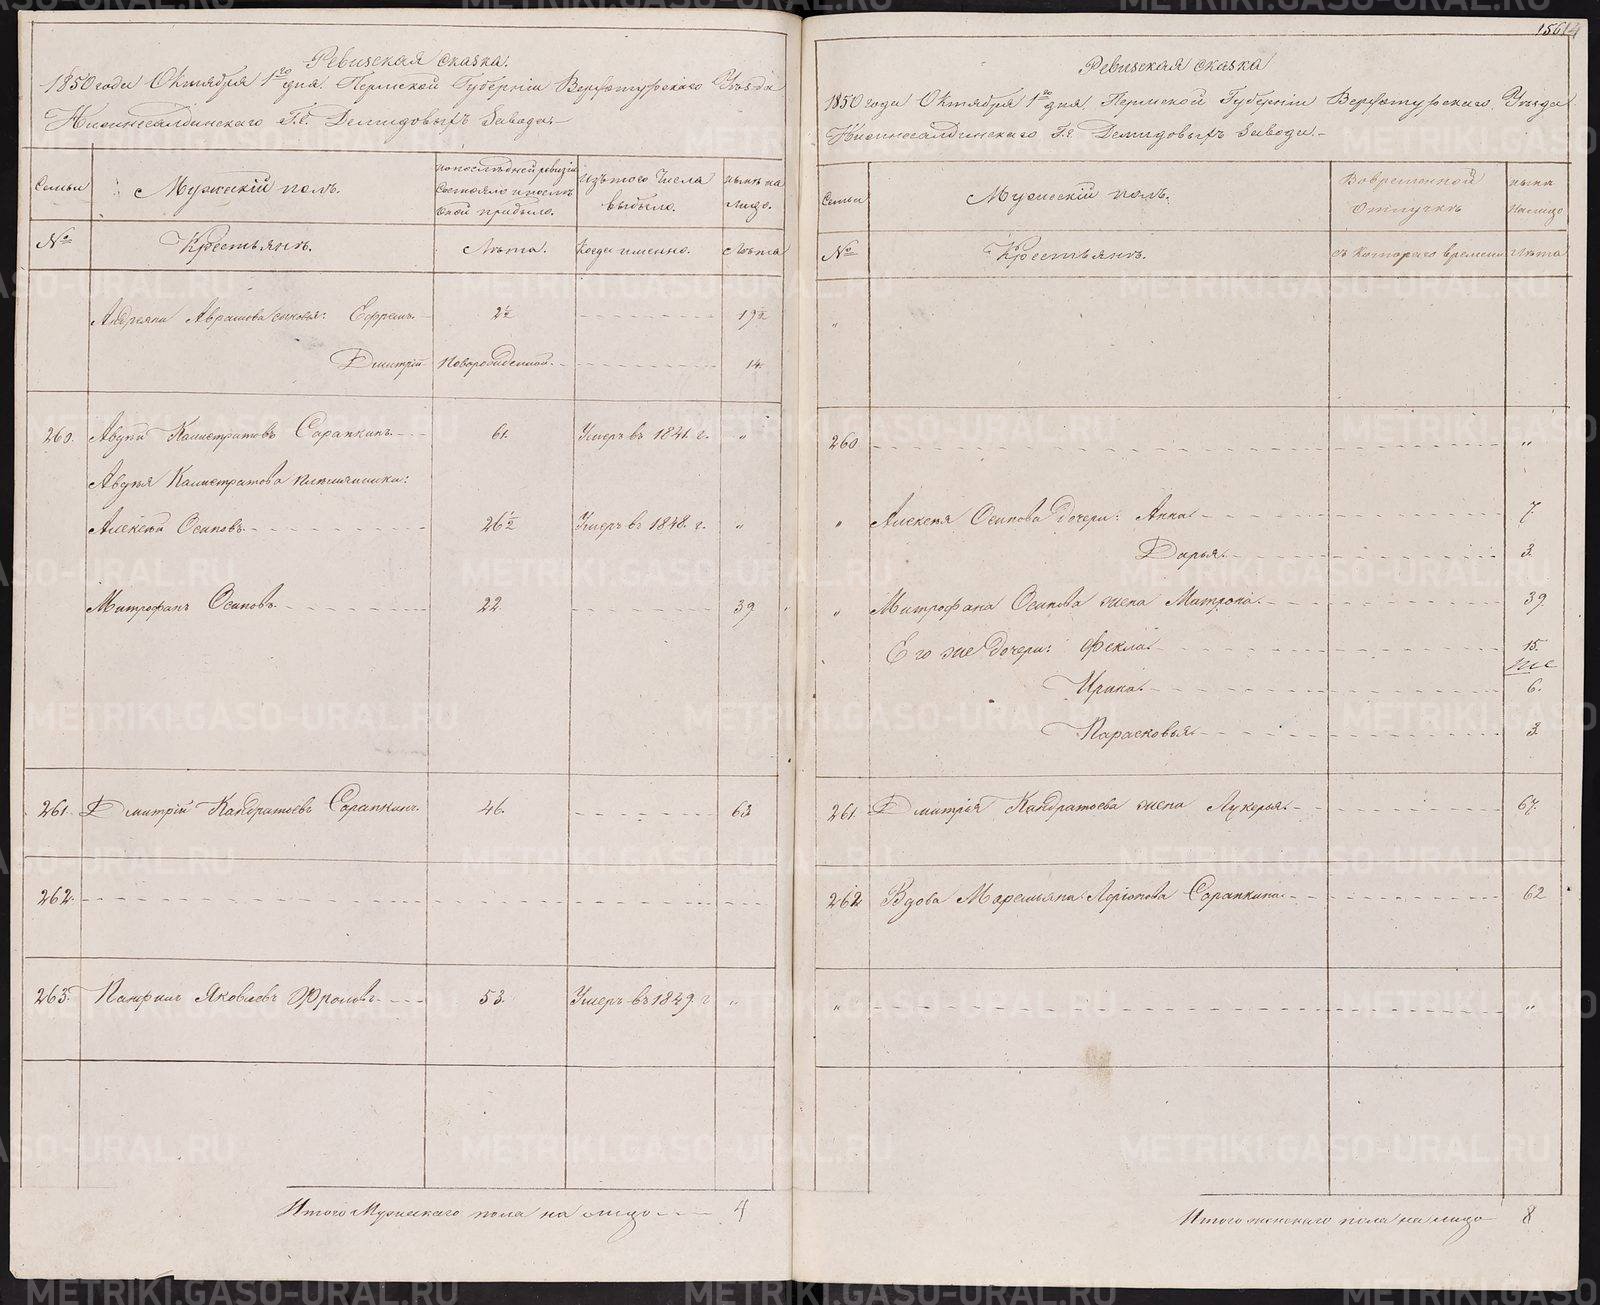 Ревизская сказка.
1850 года Октября 1го дня. Пермской Губерніи Верхотурскаго Уѣзда
Нижнесалдинскаго Г.г. Демидовыхъ Завода.
Семьи
Мужескій полъ.
по послѣдней ревизіи состояло и послѣ оной прибыло.
изъ того числа выбыло.
нынѣ на лицо.
№
Крестьянъ.
Лѣта.
Когда именно.
Лѣта
Андреяна Аврамова сыновья: Ефремъ. 2½ 19½
Дмитрій Новорожденной. 14.
260. Калистратовъ Сарапкинъ. 61. Умеръ въ 1841. г. "
Калистратова племянники:
Алексѣй Осиповъ. 26½ Умеръ въ 1848. г. "
Митрофанъ Осиповъ. 22. 39
261. Дмитрій Кандратьевъ Сарапкинъ. 46. 63
262.
263. Панфилъ Яковлевъ Фроловъ 53. Умеръ въ 1849. г "
Итого Мужескаго пола на лицо 4
1561
Ревизская сказка
1850 года Октября 1го дня. Пермской Губерніи Верхотурскаго Уѣзда
Нижнесалдинскаго Г.г. Демидовыхъ Завода.
Семьи
Мужескій полъ.
Во временной Отлучкѣ
нынѣ на лицо
№
Крестьянъ.
съ котораго времени
Лѣта
"
260 "
" Алексѣя Осипова дочери: Анна. 7.
Дарья. 3.
" Митрофана Осипова жена Матрона. 39.
Его же дочери: Фекла. 15.
Ирина. 6.
Парасковья. 3.
261. Дмитрія Кандратьева жена Лукерья. 67.
262 Вдова Маремьяна Ларіонова Сарапкина. 62
" "
Итого женскаго пола на лицо 8
METRIKI.GASO-URAL.RU